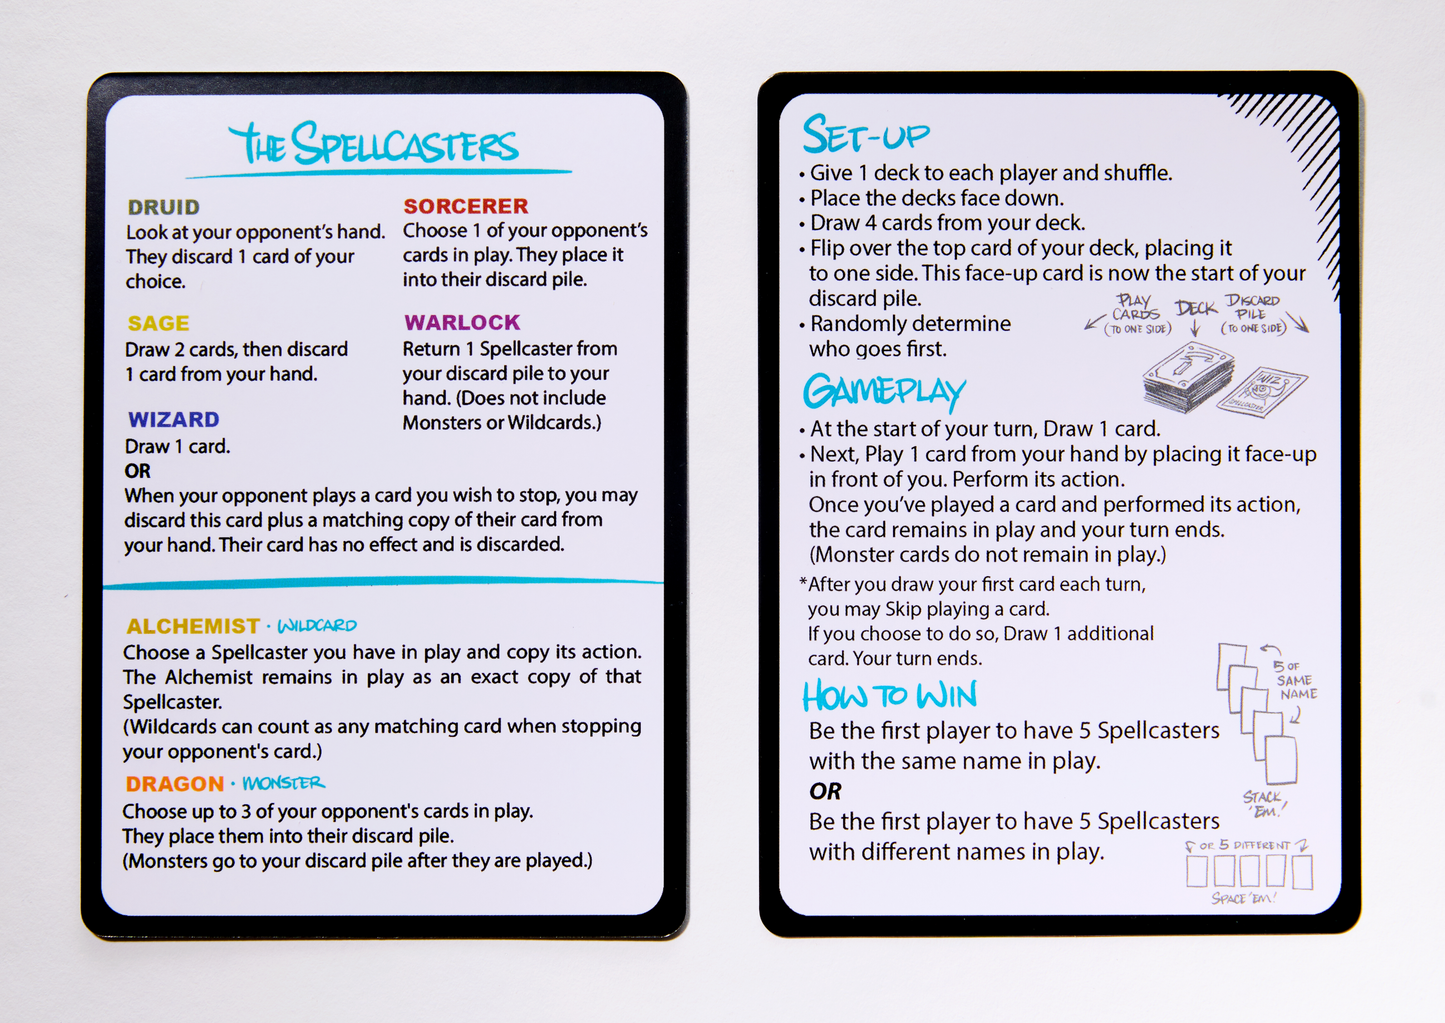 THE SPELLCASTERS
DRUID
Look at your opponent's hand.
They discard 1 card of your
choice.
SAGE
Draw 2 cards, then discard
1 card from your hand.
SORCERER
Choose 1 of your opponent's
cards in play. They place it
into their discard pile.
WARLOCK
Return 1 Spellcaster from
your discard pile to your
hand. (Does not include
Monsters or Wildcards.)
WIZARD
Draw 1 card.
OR
When your opponent plays a card you wish to stop, you may
discard this card plus a matching copy of their card from
your hand. Their card has no effect and is discarded.
ALCHEMIST · WILDCARD
Choose a Spellcaster you have in play and copy its action.
The Alchemist remains in play as an exact copy of that
Spellcaster.
(Wildcards can count as any matching card when stopping
your opponent's card.)
DRAGON · MONSTER
Choose up to 3 of your opponent's cards in play.
They place them into their discard pile.
(Monsters go to your discard pile after they are played.)
SET-UP
• Give 1 deck to each player and shuffle.
• Place the decks face down.
• Draw 4 cards from your deck.
• Flip over the top card of your deck, placing it
to one side. This face-up card is now the start of your
discard pile.
• Randomly determine
who goes first.
PLAY
CARDS
(TO ONE SIDE)
DECK
DISCARD
PILE
(TO ONE SIDE)
WIZ
SPELLCASTER
GAMEPLAY
• At the start of your turn, Draw 1 card.
• Next, Play 1 card from your hand by placing it face-up
in front of you. Perform its action.
Once you've played a card and performed its action,
the card remains in play and your turn ends.
(Monster cards do not remain in play.)
*After you draw your first card each turn,
you may Skip playing a card.
If you choose to do so, Draw 1 additional
card. Your turn ends.
HOW TO WIN
Be the first player to have 5 Spellcasters
with the same name in play.
OR
Be the first player to have 5 Spellcasters
with different names in play.
5 OF
SAME
NAME
STACK
'EM!
OR 5 DIFFERENT
SPACE 'EM!